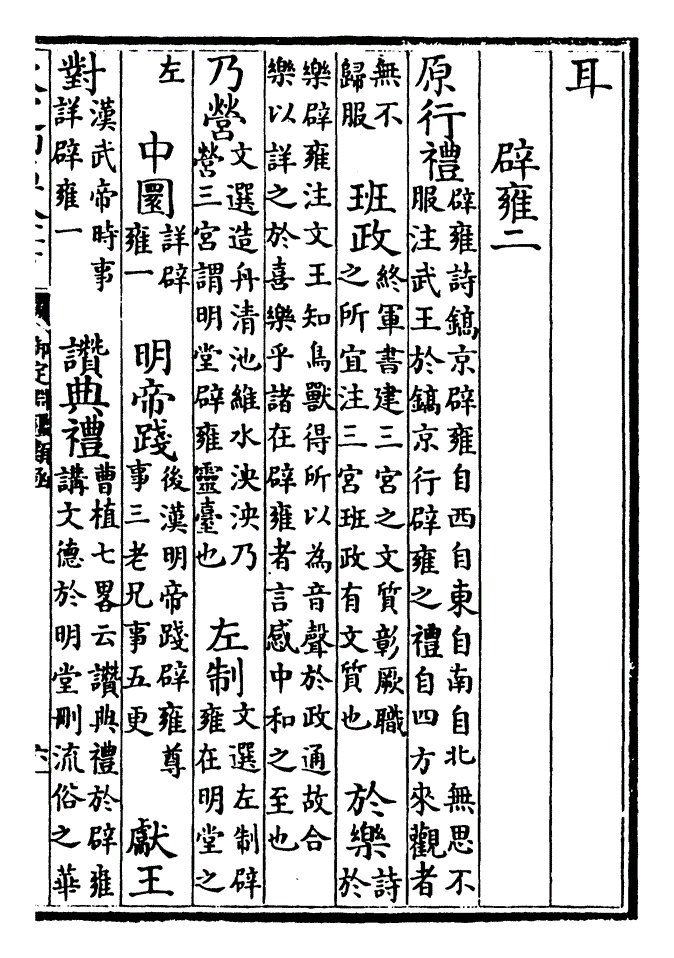 耳
辟雍二
原行禮辟雍詩鎬京辟雍自西自東自南自北無思不服注武王於鎬京行辟雍之禮自四方來觀者
無不歸服 班政終軍書建三宮之文質彰厥職之所宜注三宮班政有文質也 於樂詩於
樂辟雍注文王知鳥獸得所以為音聲於政通故合樂以詳之於喜樂乎諸在辟雍者言感中和之至也
乃營文選造舟清池維水泱泱乃營三宮謂明堂辟雍靈臺也 左制文選左制辟雍在明堂之
左 中圜詳辟雍一 明帝踐後漢明帝踐辟雍尊事三老兄事五更 獻王
對漢武帝時事詳辟雍一 讚典禮曹植七畧云讚典禮於辟雍講文德於明堂刪流俗之華